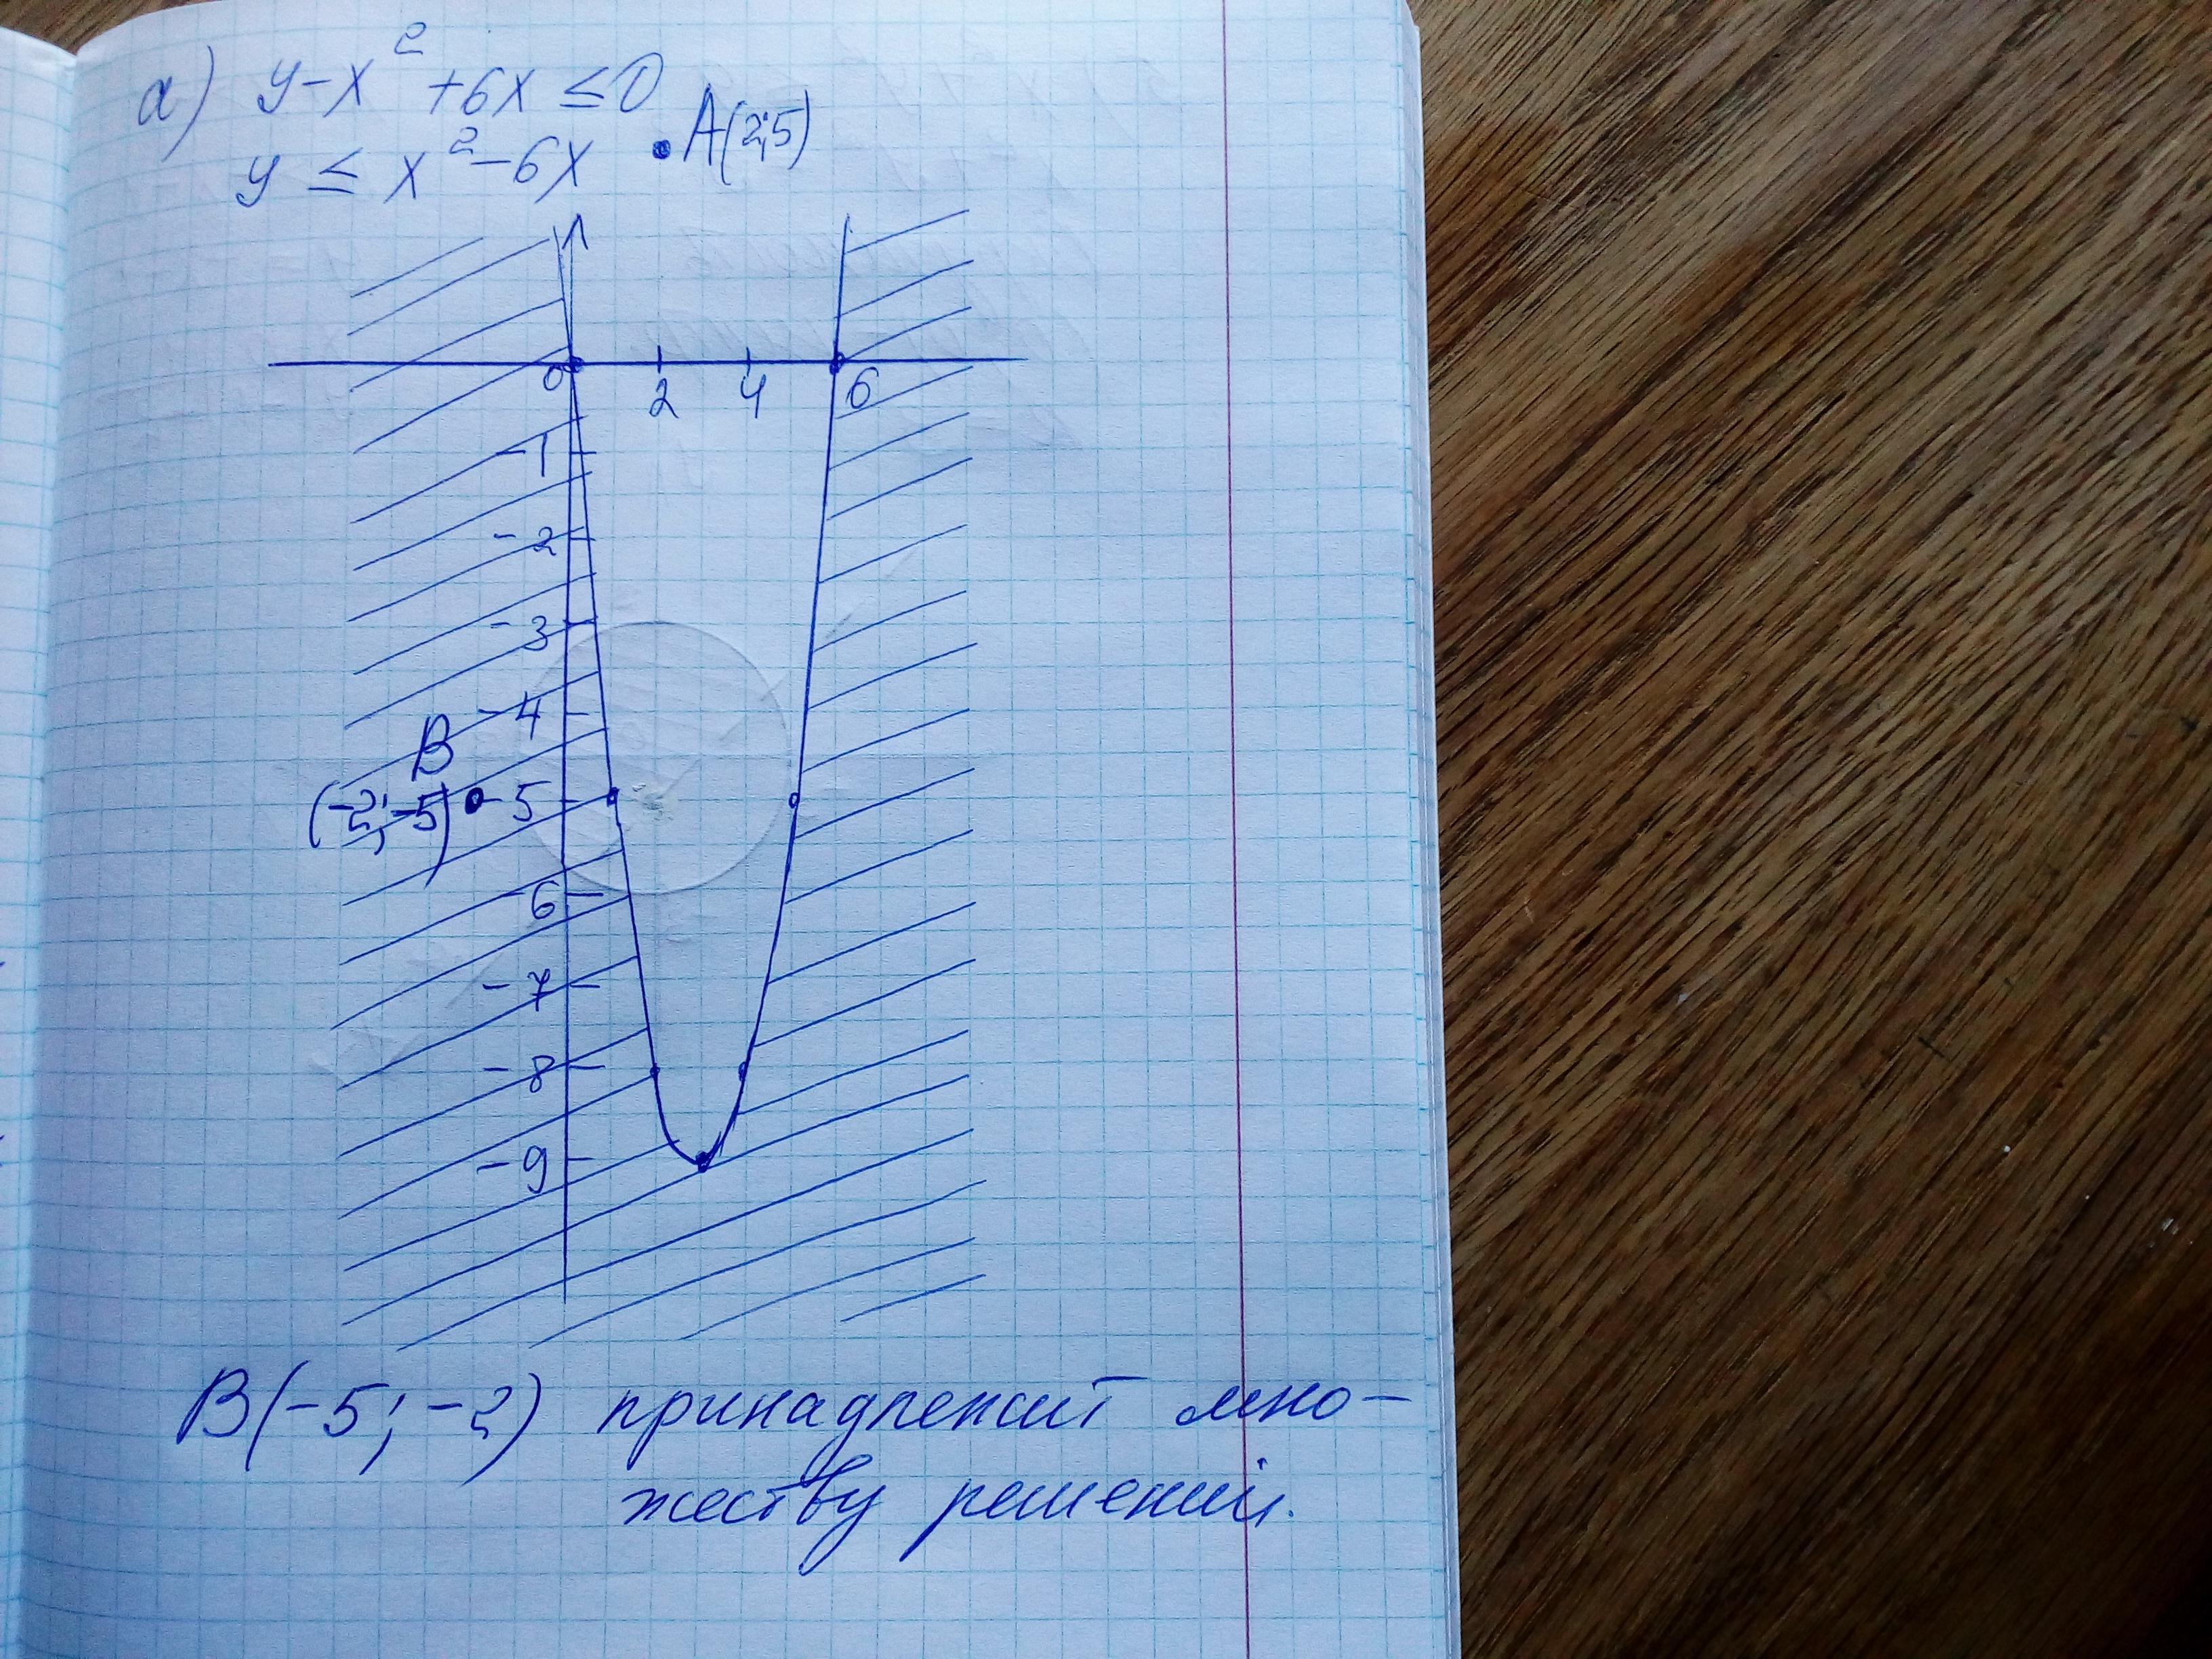 а) y-x² +6x ≤0
y ≤ x²-6x
A(2;5)
0 2 4 6
-1
-2
-3
-4
B
(-2;-5) -5
-6
-7
-8
-9
B(-5;-2) принадлежит мно-
жеству решений.